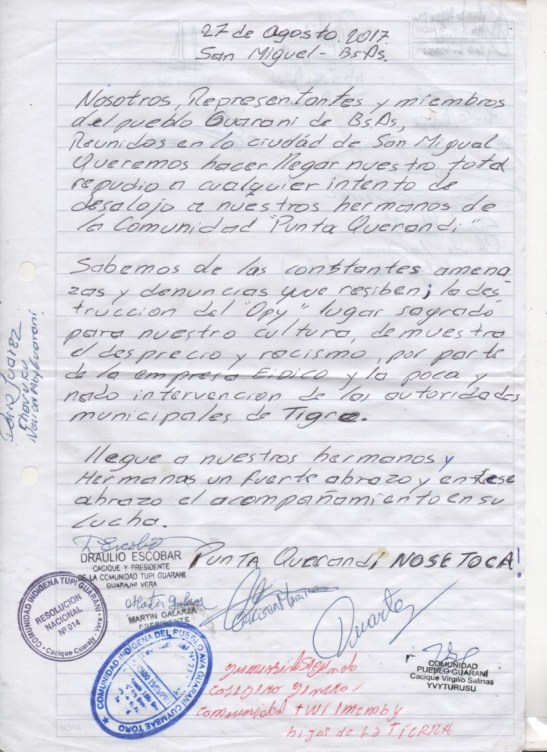 27 de Agosto. 2017
San Miguel - BsAs.
Nosotros, Representantes y miembros
del pueblo Guarani de BsAs,
Reunidos en lo ciudad de San Migual
Queremos hacer llegar nuestro total
repudio a cualquier intento de
desalojo a nuestros hermanos de
la Comunidad "Punta Querandi".
Sabemos de las constantes amena
zas y denuncias que resiben; la des
truccion del "Opy" lugar sagrado
para nuestro cultura, de muestra
el desprecio y racismo, por parte
de la empresa EIDICO y la poca y
nado intervencion de las autoridades
municipales de Tigre.
llegue a nuestros hermanos y
Hermanas un fuerte abrazo y en ese
abrazo el acompañamiento en su
lucha.
Punta Querandi NO SE TOCA!
DRAULIO ESCOBAR
CACIQUE Y PRESIDENTE
DE LA COMUNIDAD TUPI GUARANI
GUARANI VERA
MARTIN GALARZA
PRESIDENTE
COMUNIDAD INDIGENA TUPI GUARANI
RESOLUCION
NACIONAL
Nº 014
Cacique Cuaraiz
COMUNIDAD INDIGENA DEL PUEBLO AVA GUARANI CUMBAE TORO
Duarte
COMUNIDAD
PUEBLO GUARANI
Cacique Virgilio Salinas
YVYTURUSU
comunidad
hijos de La TIERRA
Juarez